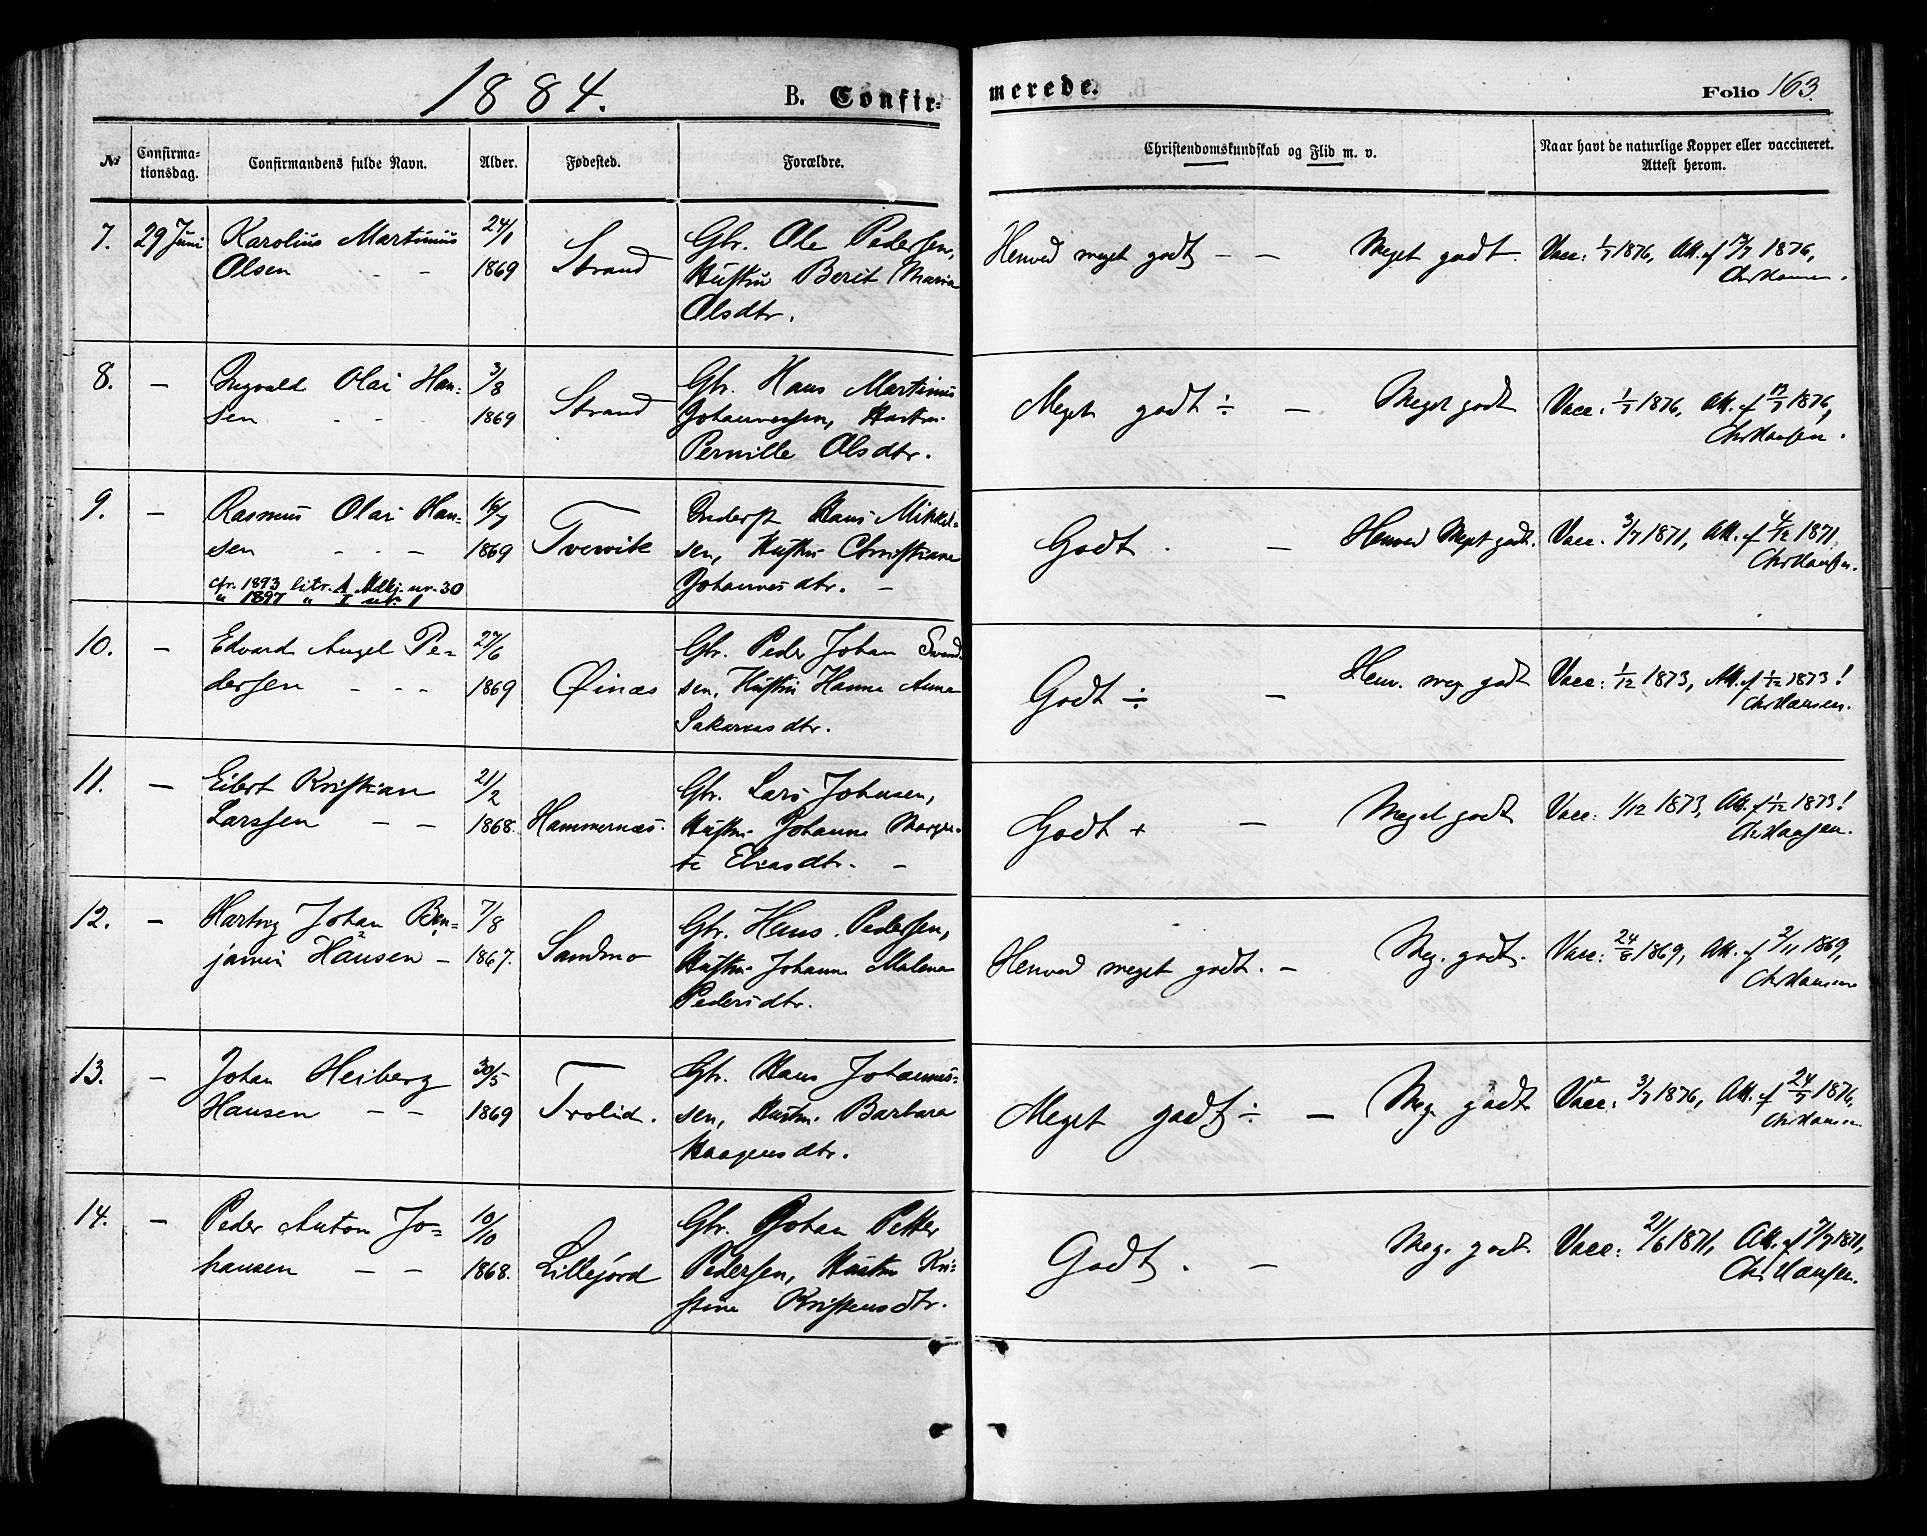 1884. B. Confirmerede. Folio 163.
№ Confirmationsdag. Confirmandens fulde Navn. Alder. Fødested. Forældre. Christendomskundskab og Flid m. v. Naar havt de naturlige Kopper eller vaccineret. Attest herom.
7. 29 Juni Karolius Martinius 24/1 Strand Gbr. Ole Pedersen, Henved meget godt – – Meget godt. Vacc: 1/7 1876, Att. af 1876,
Olsen – – 1869 Hustru Berit Maria Chr Hansen.
Olsdtr.
8. – Ingvald Olai Han- 3/8 Strand Gbr. Hans Martinus Meget godt ÷ – Meget godt Vacc: 1/7 1876, Att. af 1876,
sen – – – 1869 Johannessen, Hustru Chr Hansen.
Pernille Olsdtr.
9. – Rasmus Olai Han- 16/7 Tvervik Inderst Hans Mikkel- Godt. – Henved Meget godt. Vacc. 3/7 1871, Att. af 4/12 1871.
sen – – – 1869 sen, Hustru Christiane Chr Hansen.
cfr. 1893 litr. A Udkj. nr. 30 Johannesdtr. –
" 1897 " I nr. 1
10. – Edvard Angel Pe- 27/6 Øinæs Gbr. Peder Johan Svend- Godt ÷ – Henv. meg godt Vacc: 1/12 1873, Att. af 1/12 1873!
dersen – – – 1869 sen, Hustru Hanna Anna Chr Hansen.
Sakariasdtr.
11. – Eilert Kristian 21/2 Hammernæs. Gbr. Lars Johnsen, Godt + – Meget godt Vacc: 1/12 1873, Att. af 1/12 1873!
Larssen – – 1868. Hustru Johanna Margre- Chr Hansen.
te Eliasdtr. –
12. – Hartvig Johan Ben- 7/8 Sandmo Gbr. Hans Pedersen, Henved meget godt. – Meg. godt. Vacc: 24/8 1869, Att. af 2/11 1869,
jamin Hansen – 1867. Hustru Johanna Malena Chr Hansen
Pedersdtr.
13. – Johan Heiberg 30/5 Trolid. Gbr. Hans Johannes- Meget godt ÷ – Meg. godt Vacc: 3/7 1876, Att. af 24/7 1876,
Hansen – – 1869 sen, Hustru Barbara Chr Hansen
Haagensdtr.
14. – Peder Anton Jo- 10/10 Lillefjord Gbr. Johan Petter Godt. – Meg. godt Vacc: 21/6 1871, Att. af 1871,
hansen – – 1868. Pedersen, Hustru Kri- Chr Hansen.
stine Kristensdtr.